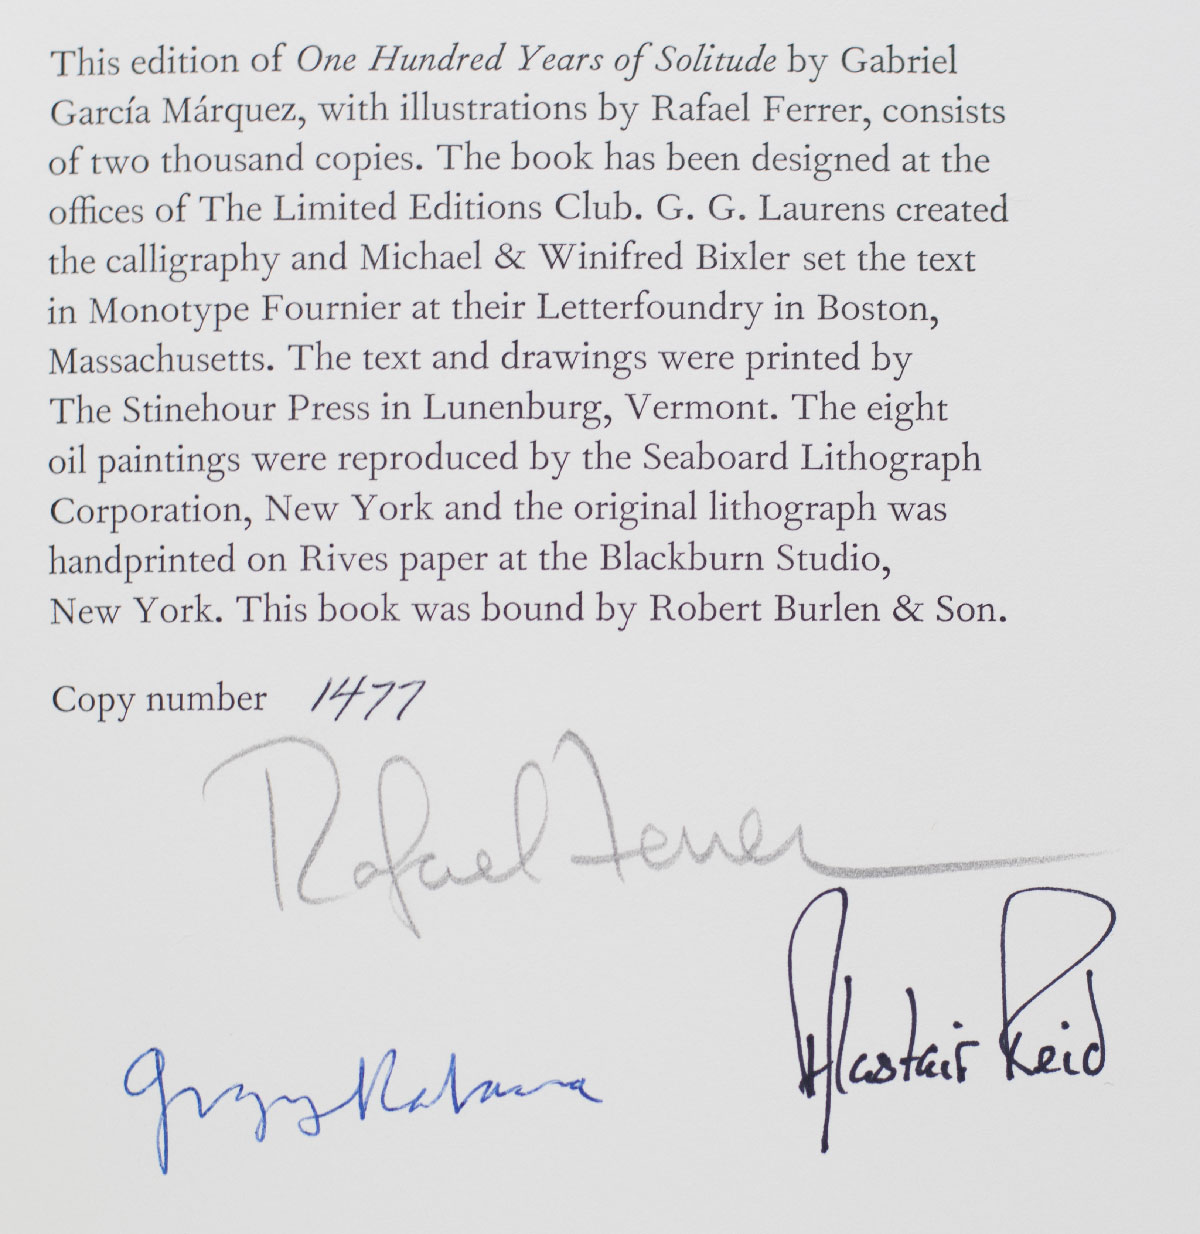 This edition of One Hundred Years of Solitude by Gabriel
García Márquez, with illustrations by Rafael Ferrer, consists
of two thousand copies. The book has been designed at the
offices of The Limited Editions Club. G. G. Laurens created
the calligraphy and Michael & Winifred Bixler set the text
in Monotype Fournier at their Letterfoundry in Boston,
Massachusetts. The text and drawings were printed by
The Stinehour Press in Lunenburg, Vermont. The eight
oil paintings were reproduced by the Seaboard Lithograph
Corporation, New York and the original lithograph was
handprinted on Rives paper at the Blackburn Studio,
New York. This book was bound by Robert Burlen & Son.
Copy number 1477
Rafael Ferrer
Alastair Reid
Gregory Rabassa